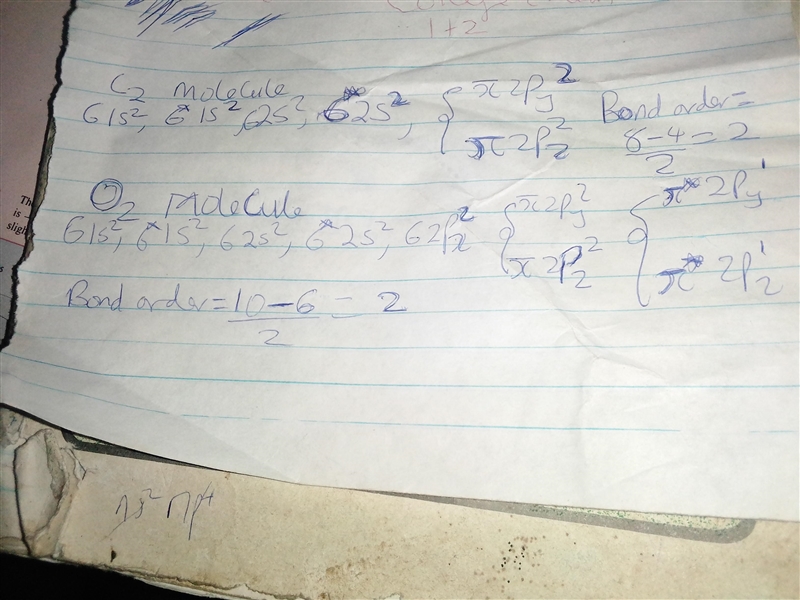 1+2
C2 molecule
σ1s², σ*1s², σ2s², σ*2s², { π2Py² π2Pz²
Bond order = 8-4/2 = 2
O2 Molecule
σ1s², σ*1s², σ2s², σ*2s², σ2Px² { π2Py² π2Pz² { π*2Py¹ π*2Pz¹
Bond order = 10-6/2 = 2